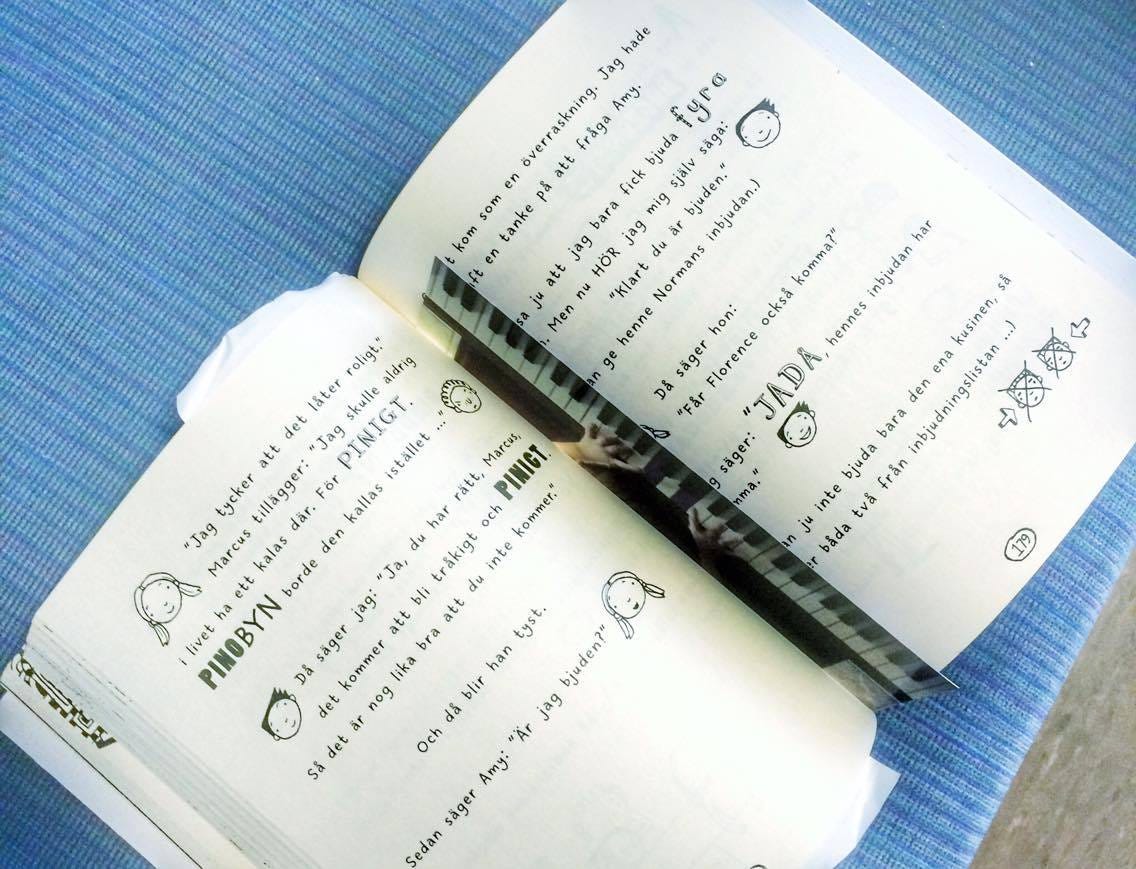 "Jag tycker att det låter roligt."
Marcus tillägger: "Jag skulle aldrig
i livet ha ett kalas där. För PINIGT.
PINOBYN borde den kallas istället ..."
Då säger jag: "Ja, du har rätt, Marcus,
det kommer att bli tråkigt och PINIGT.
Så det är nog lika bra att du inte kommer."
Och då blir han tyst.
Sedan säger Amy: "Är jag bjuden?"
t kom som en överraskning. Jag hade
ft en tanke på att fråga Amy.
sa ju att jag bara fick bjuda fyra
). Men nu HÖR jag mig själv säga:
"Klart du är bjuden."
an ge henne Normans inbjudan.)
Då säger hon:
"Får Florence också komma?"
g säger: "JADÅ, hennes inbjudan har
mma."
an ju inte bjuda bara den ena kusinen, så
er båda två från inbjudningslistan ...)
179